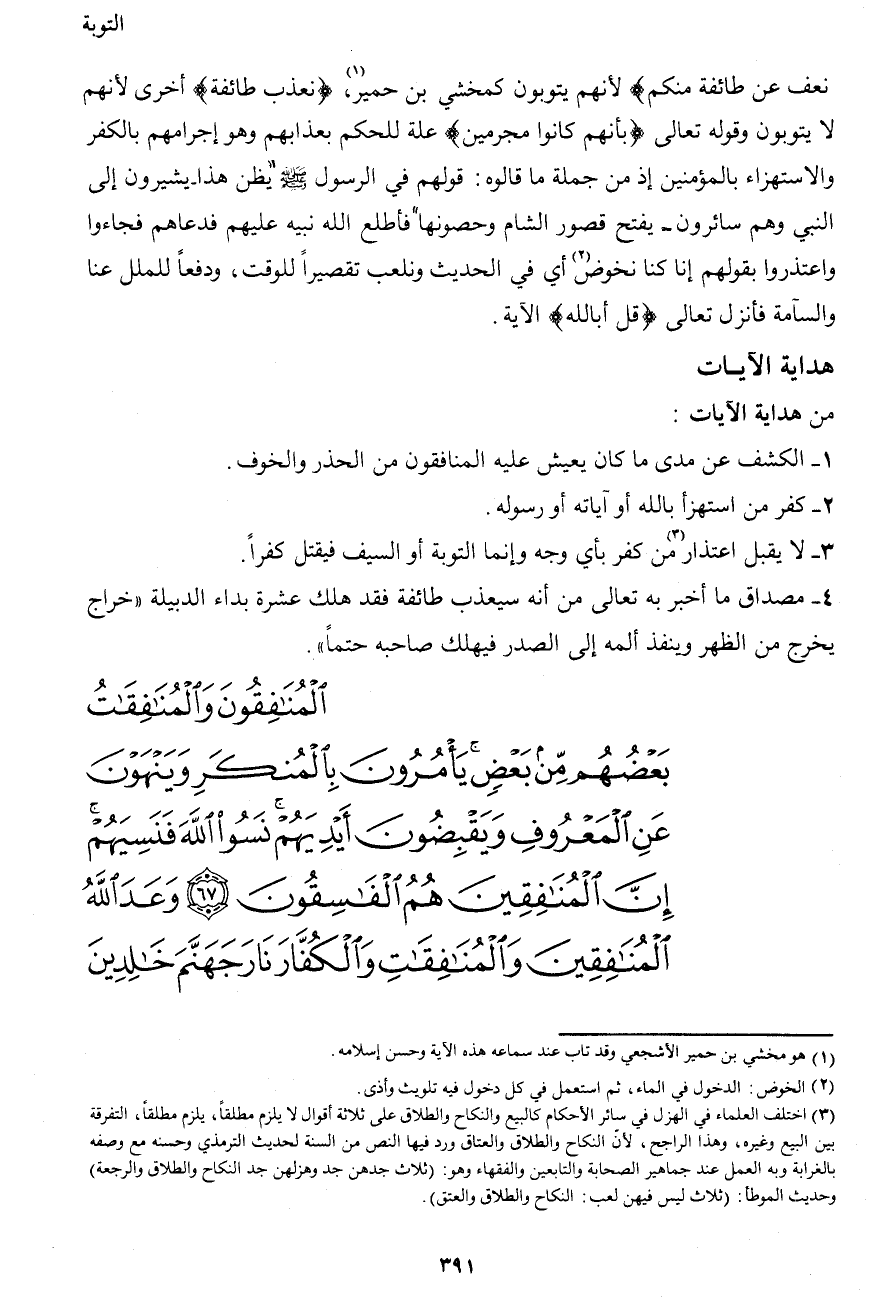 التوبة
نعف عن طائفة منكم﴾ لأنهم يتوبون كمخشي بن حمير(١)، ﴿نعذب طائفة﴾ أخرى لأنهم
لا يتوبون وقوله تعالى ﴿بأنهم كانوا مجرمين﴾ علة للحكم بعذابهم وهو إجرامهم بالكفر
والاستهزاء بالمؤمنين إذ من جملة ما قالوه : قولهم في الرسول ﷺ "يُظن هذا ـ يشيرون إلى
النبي وهم سائرون ـ يفتح قصور الشام وحصونها" فأطلع الله نبيه عليهم فدعاهم فجاءوا
واعتذروا بقولهم إنا كنا نخوض(٢) أي في الحديث ونلعب تقصيراً للوقت ، ودفعاً للملل عنا
والسآمة فأنزل تعالى ﴿قل أبالله﴾ الآية .
هداية الآيـات
من هداية الآيات :
١ـ الكشف عن مدى ما كان يعيش عليه المنافقون من الحذر والخوف .
٢ـ كفر من استهزأ بالله أو آياته أو رسوله .
٣ـ لا يقبل اعتذار(٣) من كفر بأي وجه وإنما التوبة أو السيف فيقتل كفراً .
٤ـ مصداق ما أخبر به تعالى من أنه سيعذب طائفة فقد هلك عشرة بداء الدبيلة «خراج
يخرج من الظهر وينفذ ألمه إلى الصدر فيهلك صاحبه حتماً» .
ٱلْمُنَٰفِقُونَ وَٱلْمُنَٰفِقَٰتُ
بَعْضُهُم مِّنۢ بَعْضٍۚ يَأْمُرُونَ بِٱلْمُنكَرِ وَيَنْهَوْنَ
عَنِ ٱلْمَعْرُوفِ وَيَقْبِضُونَ أَيْدِيَهُمْۚ نَسُوا۟ ٱللَّهَ فَنَسِيَهُمْۚ
إِنَّ ٱلْمُنَٰفِقِينَ هُمُ ٱلْفَٰسِقُونَ ٦٧ وَعَدَ ٱللَّهُ
ٱلْمُنَٰفِقِينَ وَٱلْمُنَٰفِقَٰتِ وَٱلْكُفَّارَ نَارَ جَهَنَّمَ خَٰلِدِينَ
(١) هو مخشي بن حمير الأشجعي وقد تاب عند سماعه هذه الآية وحسن إسلامه .
(٢) الخوض : الدخول في الماء ، ثم استعمل في كل دخول فيه تلويث وأذى .
(٣) اختلف العلماء في الهزل في سائر الأحكام كالبيع والنكاح والطلاق على ثلاثة أقوال لا يلزم مطلقاً ، يلزم مطلقاً ، التفرقة
بين البيع وغيره ، وهذا الراجح ، لأنّ النكاح والطلاق والعتاق ورد فيها النص من السنة لحديث الترمذي وحسنه مع وصفه
بالغرابة وبه العمل عند جماهير الصحابة والتابعين والفقهاء وهو : (ثلاث جدهن جد وهزلهن جد النكاح والطلاق والرجعة)
وحديث الموطأ : (ثلاث ليس فيهن لعب : النكاح والطلاق والعتق) .
٣٩١